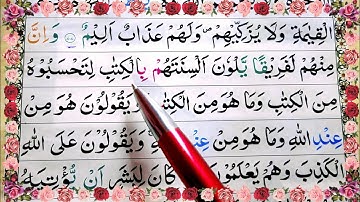 الْقِيٰمَةِ وَلَا يُزَكِّيْهِمْ ۪ وَلَهُمْ عَذَابٌ اَلِيْمٌ ۝ وَاِنَّ
مِنْهُمْ لَفَرِيْقًا يَّلْوٗنَ اَلْسِنَتَهُمْ بِالْكِتٰبِ لِتَحْسَبُوْهُ
مِنَ الْكِتٰبِ وَمَا هُوَ مِنَ الْكِتٰبِ وَيَقُوْلُوْنَ هُوَ مِنْ
عِنْدِ اللّٰهِ وَمَا هُوَ مِنْ عِنْدِ وَيَقُوْلُوْنَ عَلَى اللّٰهِ
الْكَذِبَ وَهُمْ يَعْلَمُوْنَ كَانَ لِبَشَرٍ اَنْ يُّؤْتِيَهُ